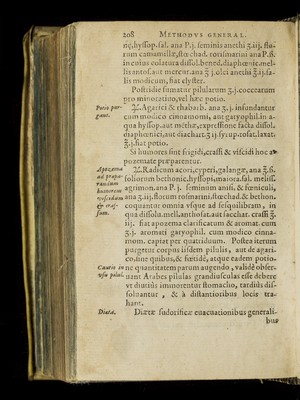 208 METHODVS GENERAL.
riç.hyssop.sal. ana P.j. seminis anethi ʒ.iij. flo-
rum camamillæ, stœchad. rorismarini ana P.ß.
in cuius colatura dissol. bened. diaphœnic. mel-
lis anthos. aut mercur. ana ℥.j. olei anethi ℥.ij. sa-
lis modicum, fiat clyster.
Postridie sumatur pilularum ʒ.j. coccearum
pro minoratiuo, vel hæc potio.
Potio pur-
gans.
℞. Agarici & rhabarb. ana ʒ.j. infundantur
cum modico cinnamomi, aut garyophil. in a-
qua hyssop. aut mēthæ, expressione facta dissol.
ʒ.j. fiat potio.
Si humores sint frigidi, crassi & viscidi hoc a-
pozemate præparentur.
Apozema
ad præpa-
randum
humorem
viscidum
& cras-
sum.
℞. Radicum acori, cyperi, galangæ, ana ℥.ß.
foliorum bethonic. hyssopi, maiora. sal. meliss.
agrimon. ana P.j. seminum anisi, & fœniculi,
ana ʒ.iij. florum rosmarini, stœchad. & bethon.
coquantur omnia vsque ad sesquilibram, in
qua dissolu. mell. anthosat. aut sacchar. crassi ℥.
iij. fiat apozema clarificatum & aromat. cum
ʒ.j. aromati garyophil. cum modico cinna-
mom. capiat per quatriduum. Postea iterum
purgetur corpus iisdem pilulis, aut de agari-
co, sine quibus, & fœtidæ, atque eadem potio-
Cautio in
vsu pilul.
ne quantitatem parum augendo, validè obser-
uant Arabes pilulas grandiusculas esse debere
ve diutiùs immorentur stomacho, tardiùs dis-
soluantur, & à distantioribus locis tra-
hant.
Diæta.
Diætæ sudorificæ euacuationibus generali-
bus